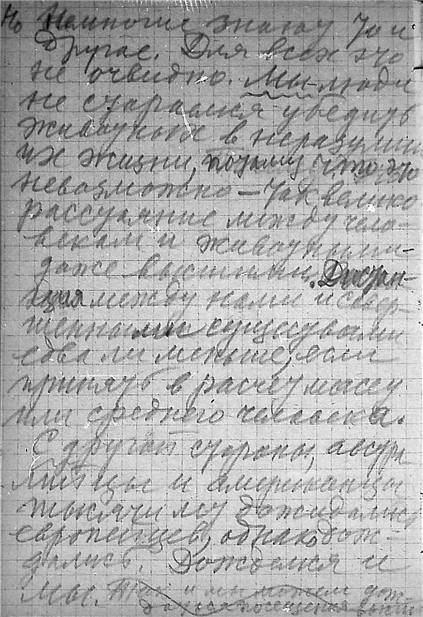 Но Немногие знают то и
другое. Для всех это
не очевидно. Мы люди
не стараемся убедить
животных в неразумии
их жизни, потому что это
невозможно – так велико
расстояние между чело-
веком и животными –
даже высшими. Дистан-
ция между нами и совер-
шенными существами
едва ли меньше, если
принять в расчет массу
или среднего человека.
С другой стороны, австра
лийцы и американцы
тысячи лет дожидались
европейцев, однако дож-
дались. Дождемся и
мы. Так и мы можем дож
даться посещения высш